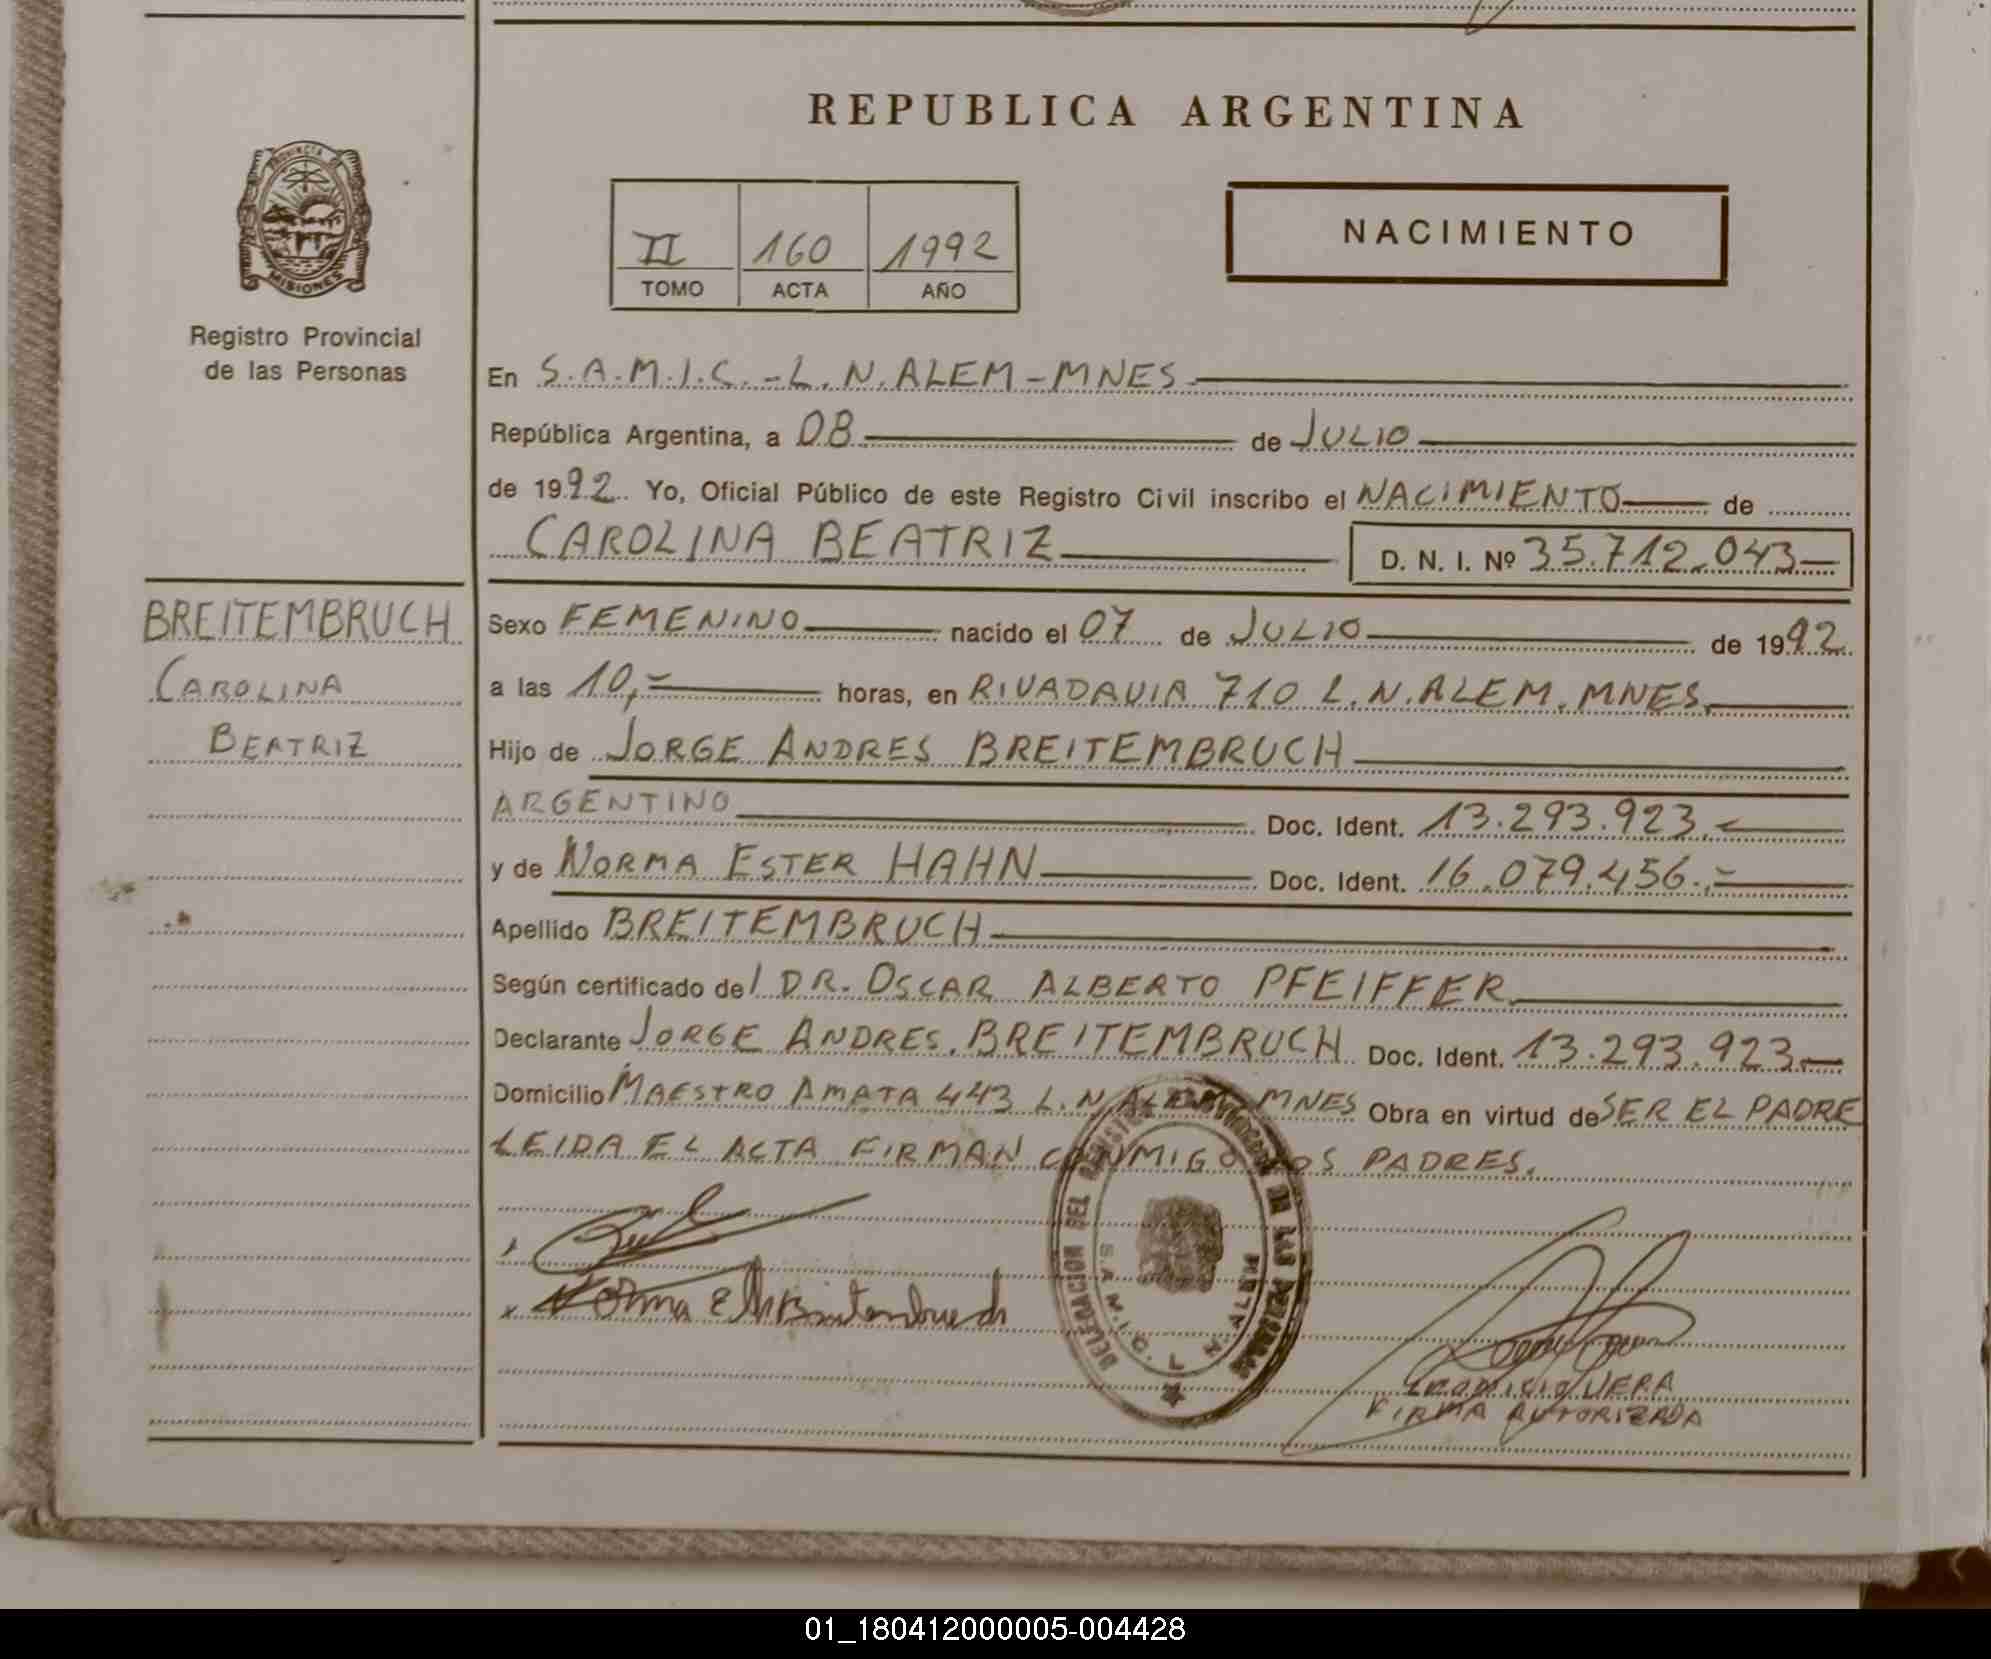 REPUBLICA ARGENTINA
PROVINCIA DE
MISIONES
Registro Provincial
de las Personas
II 160 1992
TOMO ACTA AÑO
NACIMIENTO
En S.A.M.I.C. - L.N.ALEM - MNES
República Argentina, a 08 de JULIO
de 1992. Yo, Oficial Público de este Registro Civil inscribo el NACIMIENTO de
CAROLINA BEATRIZ D. N. I. Nº 35.712.043
BREITEMBRUCH
CAROLINA
BEATRIZ
Sexo FEMENINO nacido el 07 de JULIO de 1992
a las 10,- horas, en RIVADAVIA 710 L.N.ALEM. MNES.
Hijo de JORGE ANDRES BREITEMBRUCH
ARGENTINO Doc. Ident. 13.293.923
y de NORMA ESTER HAHN Doc. Ident. 16.079.456.-
Apellido BREITEMBRUCH
Según certificado del DR. OSCAR ALBERTO PFEIFFER
Declarante JORGE ANDRES BREITEMBRUCH Doc. Ident. 13.293.923
Domicilio MAESTRO AMATA 443 L.N.ALEM MNES Obra en virtud de SER EL PADRE
LEIDA EL ACTA FIRMAN CONMIGO LOS PADRES.
DELEGACION DEL REGISTRO DE LAS PERSONAS
S.A.M.I.C. L. N. ALEM
Norma E
VERA
FIRMA AUTORIZADA
01_180412000005-004428